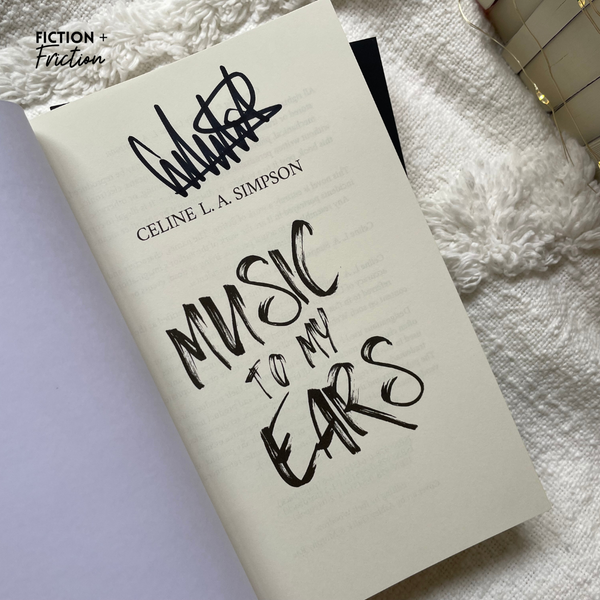 FICTION +
Friction
CELINE L. A. SIMPSON
MUSIC
TO MY
EARS